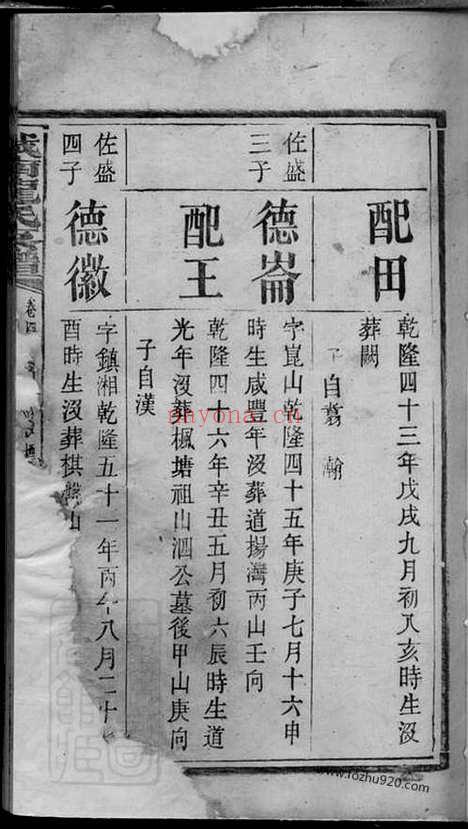 配田
乾隆四十三年戊戌九月初八亥時生沒
葬闕
子自翥翰
佐盛
三子
德崙
字崑山乾隆四十五年庚子七月十六申
時生咸豐年沒葬道揚灣丙山壬向
配王
乾隆四十六年辛丑五月初六辰時生道
光年沒葬楓塘祖山泗公墓後甲山庚向
子自漢
佐盛
四子
德徽
字鎮湘乾隆五十一年丙午八月二十
酉時生沒葬棋盤山
卷四
nyona.cn
www.fozhu920.com